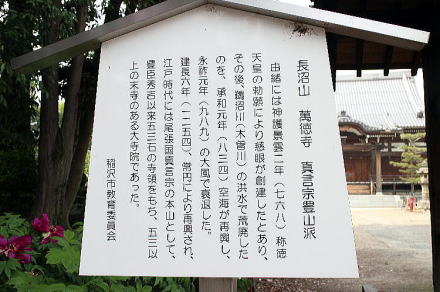 長沼山　萬徳寺　真言宗豊山派
由緒には神護景雲二年（七六八）称徳
天皇の勅願により慈眼が創建したとあり、
その後、鵜沼川（木曽川）の洪水で荒廃した
のを、承和元年（八三四）空海が再興し、
永祚元年（九八九）の大風で衰退した。
建長六年（一二五四）、常円により再興され、
江戸時代には尾張国真言宗の本山として、
豊臣秀吉以来五三石の寺領をもち、五三以
上の末寺のある大寺院であった。
稲沢市教育委員会